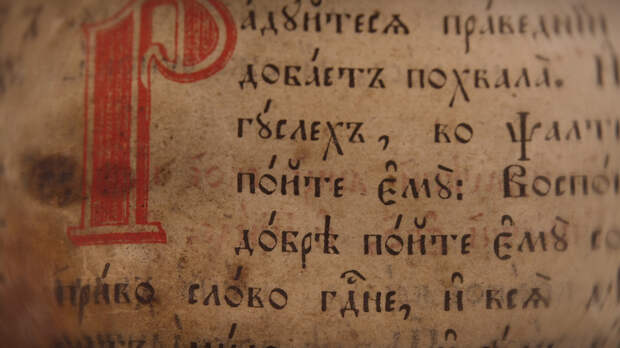 Ра́дуйтесѧ пра́веднїи
добаетъ похвала̀. П
гꙋ́слехъ, во Ѱалт
по́йте є҆мꙋ̀: Воспо
до́брѣ по́йте є҆мꙋ̀ со
пра́во сло́во гдⷭ҇не, и҆ всѧ̀